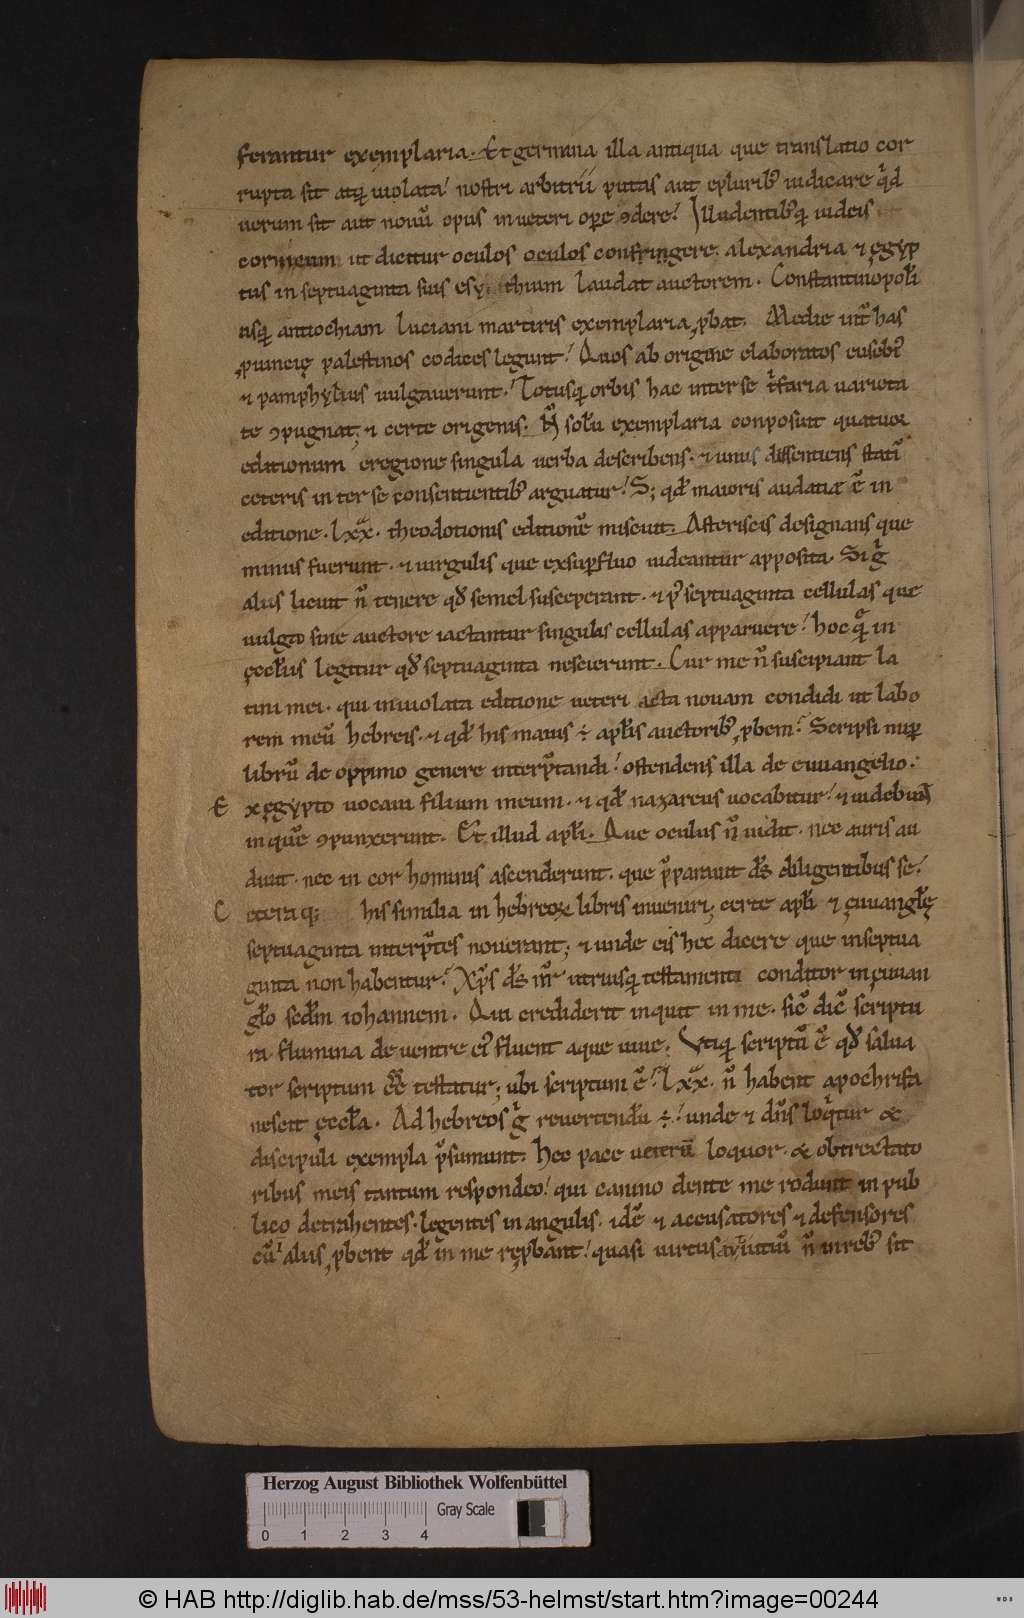 ferantur exemplaria. Et germana illa antiqua que translatio cor
rupta sit atq; uiolata! nostri arbitrii putas aut eplurib; iudicare qͥd
uerum sit aut nouū opus in ueteri oꝑe ꝯdere! Illudentibꝰq; iudeis
cornicum ut dicitur oculos oculos confringere. alexandria ⁊ ęgyp
tus in septuaginta suis esy thium laudat auctorem. Constantinopolī
usq; antiochiam luciani martiris exemplaria ꝓbat. Medie int̄ has
ꝓuincię palestinos codices legunt! Quos ab origine elaboratos eusebiꝰ
⁊ pamphylius uulgauerunt. Totusq; orbis hac inter se t̄faria uarieta
te ꝯpugnat; ⁊ certe origenis. n̄ solū exemplaria conposuit quatuoꝝ
editionum eregione singula uerba describens. ⁊ unus dissentiens statī
ceteris in ter se consentientibꝰ arguatur! S; qd̄ maioris audatiæ ē in
editione. lxx. theodotionis editionē miscuit. Asteriscis designans que
minus fuerunt. ⁊ uirgulis que exsuꝑfluo uideantur apposita. Si gͥ
aliis licuit n̄ tenere qd̄ semel susceperant. ⁊ pꝰ septuaginta cellulas que
uulgo sine auctore iactantur singulas cellulas apparuere! hoc q; in
ęcclīis legitur qd̄ septuaginta nescierunt. Cur me n̄ suscipiant la
tini mei. qui inuiolata editione ueteri acta nouam condidi ut labo
rem meū hebreis. ⁊ qd̄ his maius ÷ aplīs auctoribꝰ ꝓbem? Scripsi nuꝑ
librū de oppimo genere interp̄tandi! ostendens illa de euuangelio.
E x ęgypto uocaui filium meum. ⁊ qd̄ nazareus uocabitur! ⁊ uidebunt
in quē ꝯpunxerunt. Et illud aplī. Que oculus n̄ uidit. nec auris au
diuit. nec in cor hominis ascenderunt. que p̄parauit dꝰs diligentibus se!
C etera q; his similia in hebreoꝝ libris inueniri; certe aplī ⁊ ęuuanglīstę
septuaginta interp̄tes nouerant; ⁊ unde eis hec dicere que in septua
ginta non habentur? Xp̄s dꝰs nr̄ utriusq; testamenti conditor in ęuuan
glīo sedm̄ iohannem. Qui crediderit inquit in me. sic̄ dic̄ scriptu
ra. flumina de uentre eiꝰ fluent aque uiue. Vtiq; scriptū ē qd̄ salua
tor scriptum eē testatur; ubi scriptum ē? lxx. n̄ habent apochrifa
nescit ęcclīa. Ad hebreos gͥ reuertendū ÷! unde ⁊ dn̄s loq̄tur &
discipuli exempla p̄sumunt. Hec pace ueterū loquor. & obtrectato
ribus meis tantum respondeo! qui canino dente me rodunt in pub
lico detrahentes. legentes in angulis. idē ⁊ accusatores ⁊ defensores
cū aliis ꝓbent qd̄ in me reꝓbant! quasi uirtus uitiū n̄ in rebꝰ sit
Herzog August Bibliothek Wolfenbüttel
Gray Scale
0 1 2 3 4
© HAB http://diglib.hab.de/mss/53-helmst/start.htm?image=00244